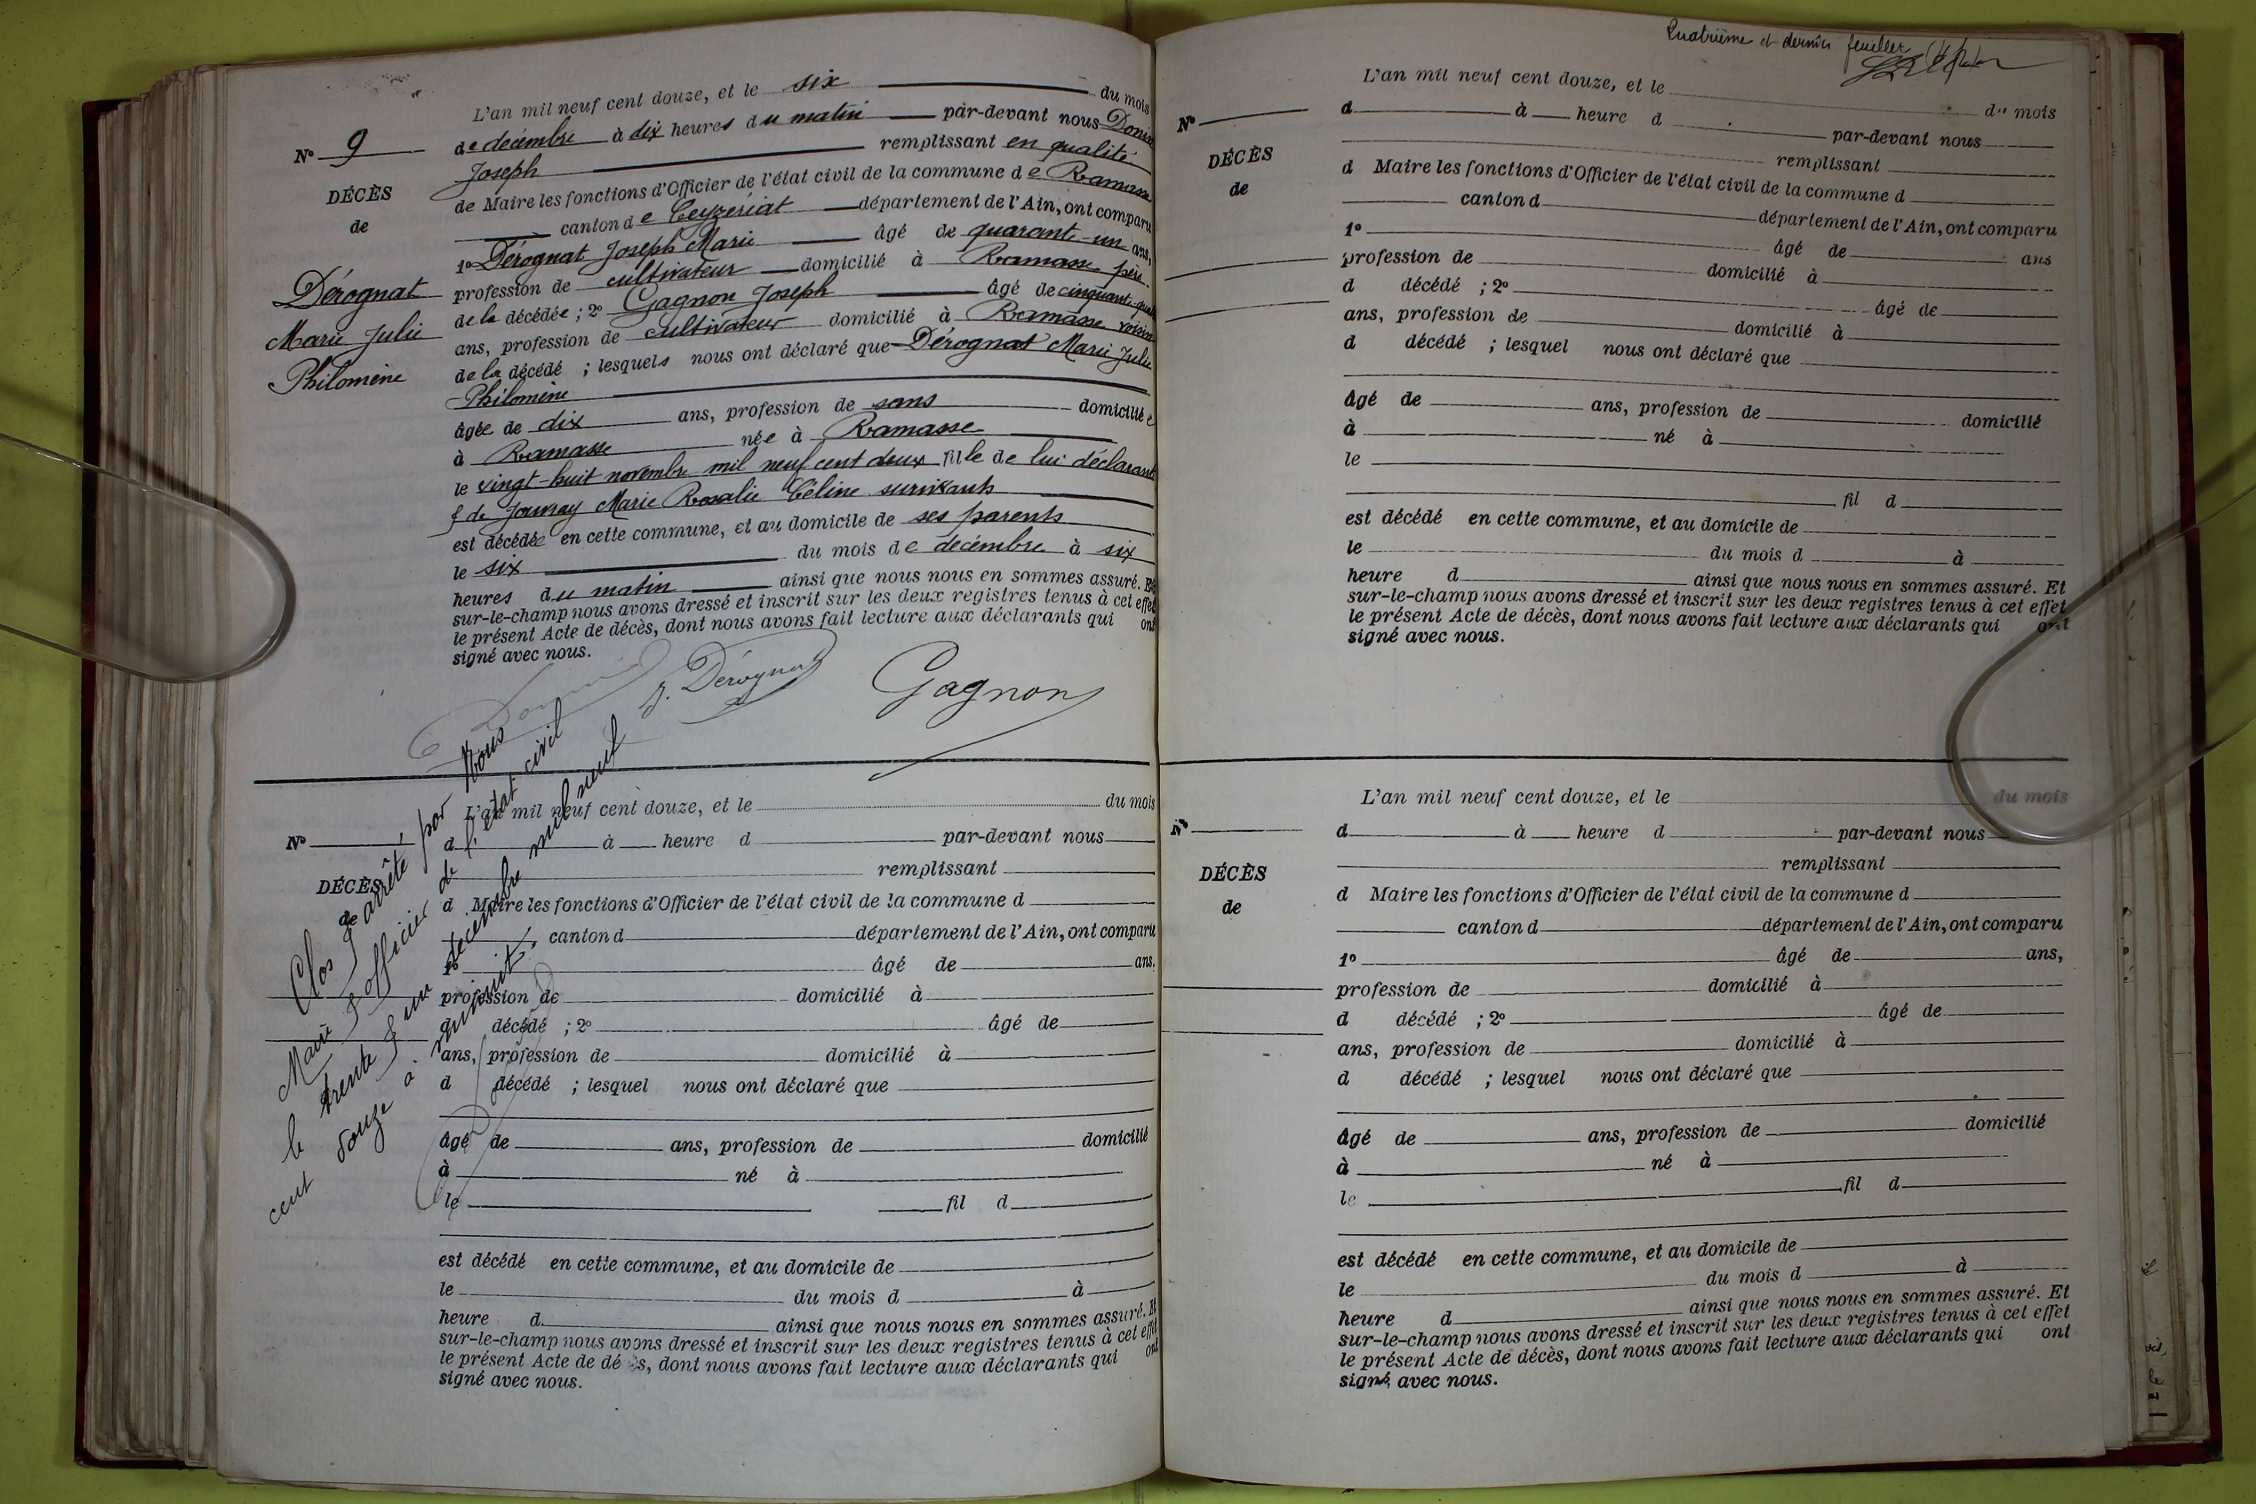 L'an mil neuf cent douze, et le six du mois
N° 9
de décembre à dix heures du matin par-devant nous
Joseph remplissant en qualité
DÉCÈS
de Maire les fonctions d'Officier de l'état civil de la commune de Ramasse
de
canton de Ceyzériat département de l'Ain, ont comparu
1° Dérognat Joseph Marie âgé de quarante-un ans,
Dérognat
profession de cultivateur domicilié à Ramasse père
de la décédée ; 2° Gagnon Joseph âgé de cinquante-quatre
Marie Julie
ans, profession de cultivateur domicilié à Ramasse voisin
Philomène
de la décédé ; lesquels nous ont déclaré que Dérognat Marie Julie
Philomène
âgée de dix ans, profession de sans domiciliée
à Ramasse née à Ramasse
le vingt-huit novembre mil neuf cent deux fille de lui déclarant
& de Marie Rosalie Céline survivants
est décédée en cette commune, et au domicile de ses parents
le six du mois de décembre à six
heures du matin ainsi que nous nous en sommes assuré. Et
sur-le-champ nous avons dressé et inscrit sur les deux registres tenus à cet effet
le présent Acte de décès, dont nous avons fait lecture aux déclarants qui ont
signé avec nous.
J. Dérognat
Gagnon
Clos & arrêté par Nous
Maire & officier de l'état civil
le trente & un décembre mil neuf
cent douze à minuit.
L'an mil neuf cent douze, et le du mois
N°
d à heure d par-devant nous
remplissant
DÉCÈS
d Maire les fonctions d'Officier de l'état civil de la commune d
de
canton d département de l'Ain, ont comparu
1° âgé de ans.
profession de domicilié à
d décédé ; 2° âgé de
ans, profession de domicilié à
d décédé ; lesquel nous ont déclaré que
âgé de ans, profession de domicilié
à né à
le fil d
est décédé en cette commune, et au domicile de
le du mois d à
heure d ainsi que nous nous en sommes assuré. Et
sur-le-champ nous avons dressé et inscrit sur les deux registres tenus à cet effet
le présent Acte de décès, dont nous avons fait lecture aux déclarants qui ont
signé avec nous.
Quatrième et dernier feuillet
L'an mil neuf cent douze, et le du mois
N°
d à heure d par-devant nous
remplissant
DÉCÈS
d Maire les fonctions d'Officier de l'état civil de la commune d
de
canton d département de l'Ain, ont comparu
1° âgé de ans
profession de domicilié à
d décédé ; 2° âgé de
ans, profession de domicilié à
d décédé ; lesquel nous ont déclaré que
âgé de ans, profession de domicilié
à né à
le
fil d
est décédé en cette commune, et au domicile de
le du mois d à
heure d ainsi que nous nous en sommes assuré. Et
sur-le-champ nous avons dressé et inscrit sur les deux registres tenus à cet effet
le présent Acte de décès, dont nous avons fait lecture aux déclarants qui ont
signé avec nous.
L'an mil neuf cent douze, et le du mois
N°
d à heure d par-devant nous
remplissant
DÉCÈS
d Maire les fonctions d'Officier de l'état civil de la commune d
de
canton d département de l'Ain, ont comparu
1° âgé de ans,
profession de domicilié à
d décédé ; 2° âgé de
ans, profession de domicilié à
d décédé ; lesquel nous ont déclaré que
âgé de ans, profession de domicilié
à né à
le fil d
est décédé en cette commune, et au domicile de
le du mois d à
heure d ainsi que nous nous en sommes assuré. Et
sur-le-champ nous avons dressé et inscrit sur les deux registres tenus à cet effet
le présent Acte de décès, dont nous avons fait lecture aux déclarants qui ont
signé avec nous.